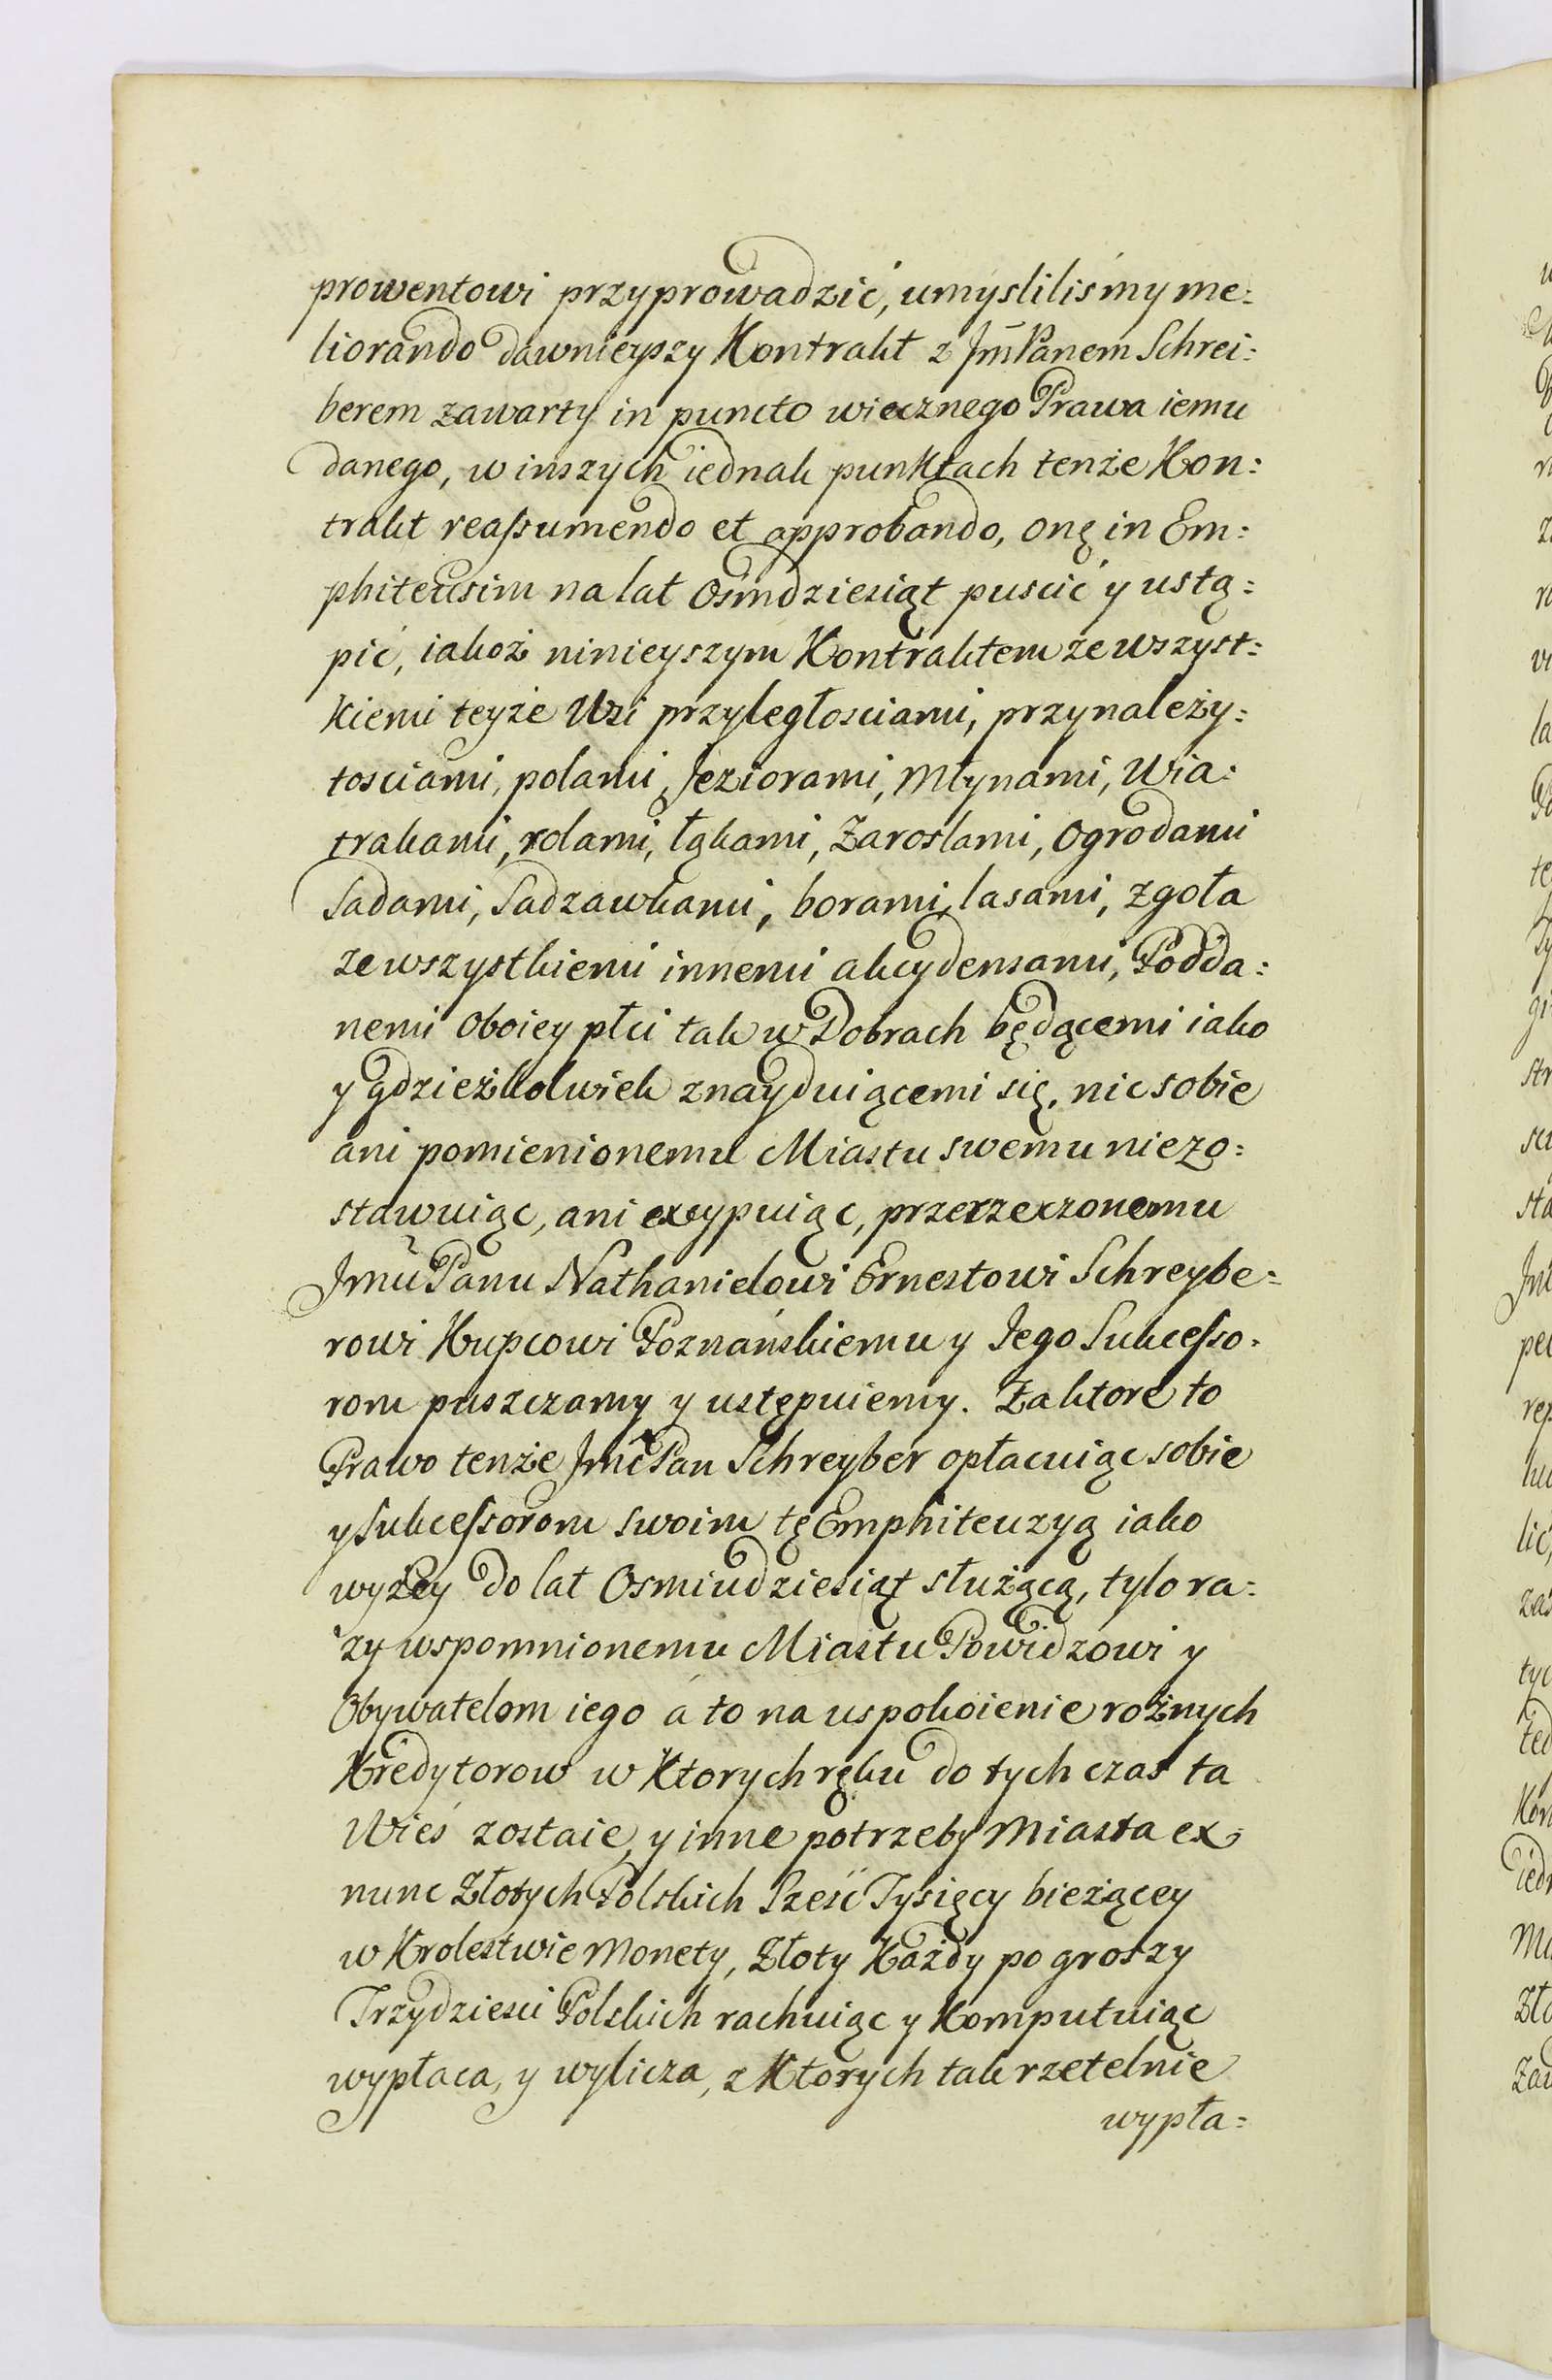 prowentowi przyprowadzić, umyslilismy me:
liorando dawnieyszy Kontrakt z Jm̃ Panem Schrei:
berem zawarty in puncto wiecznego Prawa iemu
danego, w inszych iednak punktach tenże Kon:
trakt reaſsumendo et approbando, onę in Em:
phiteusim na lat osmdziesiąt puscić y ustą:
pić, iakoż ninieyszym Kontraktem ze wszyst:
kiemi teyże Wsi przyległosciami, przynależy:
tosciami, polami, Jeziorami, Młynami, Wia:
trakami, rolami, łąkami, Zaroslami, Ogrodami
Sadami, Sadzawkami, borami, lasami, zgoła
ze wszystkiemi innemi akcydensami, Podda:
nemi oboiey płci tak w Dobrach będącemi iako
y gdzieżkolwiek znayduiącemi się, nic sobie
ani pomienionemu Miastu swemu niezo:
stawuiąc, ani excypuiąc, przerzeczonemu
Jmũ Panu Nathanielowi Ernestowi Schreybe:
rowi Kupcowi Poznańskiemu y Jego Sukceſso:
rom puszczamy y ustępuiemy. Za ktore to
Prawo tenże Jmć Pan Schreyber opłacuiąc sobie
y Sukceſsorom swoim tę Emphiteuzyą iako
wyżey do lat Osmiudziesiąt służącą, tylo ra:
zy wspomnionemu Miastu Powidzowi y
Obywatelom iego á to na uspokoienie rożnych
Kredytorow w Ktorych ręku do tych czas ta
Wieś zostaie, y inne potrzeby Miasta ex
nunc Złotych Polskich Sześć Tysięcy bieżącey
w Krolestwie Monety, Złoty Każdy po groszy
Trzydziesci Polskich rachuiąc y Komputuiąc
wypłaca, y wylicza, z Ktorych tak rzetelnie
wypła: